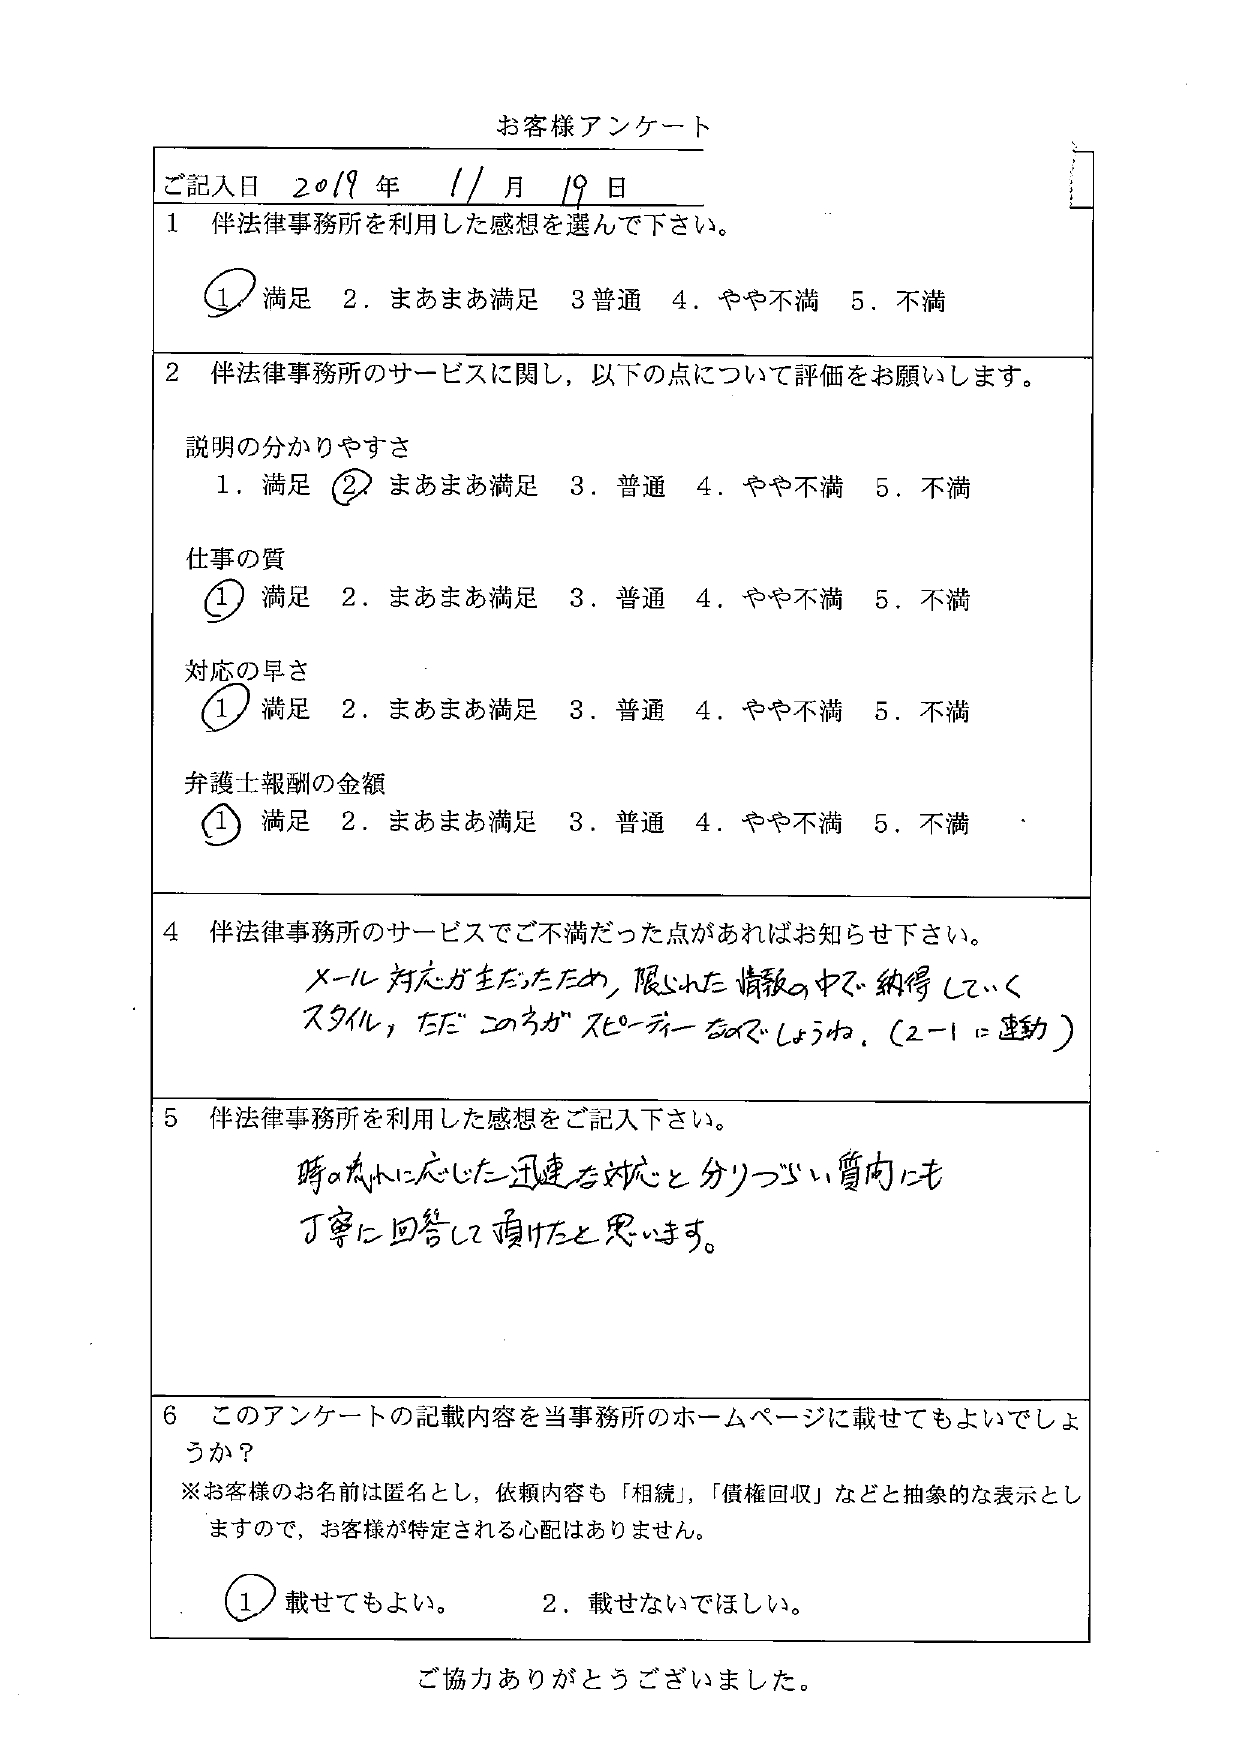 お客様アンケート
ご記入日 2019 年 11 月 19 日
1 伴法律事務所を利用した感想を選んで下さい。
1 満足 2．まあまあ満足 3普通 4．やや不満 5．不満
2 伴法律事務所のサービスに関し，以下の点について評価をお願いします。
説明の分かりやすさ
1．満足 2 まあまあ満足 3．普通 4．やや不満 5．不満
仕事の質
1 満足 2．まあまあ満足 3．普通 4．やや不満 5．不満
対応の早さ
1 満足 2．まあまあ満足 3．普通 4．やや不満 5．不満
弁護士報酬の金額
1 満足 2．まあまあ満足 3．普通 4．やや不満 5．不満
4 伴法律事務所のサービスでご不満だった点があればお知らせ下さい。
メール対応が主だったため，限られた情報の中で納得していく
スタイル，ただ このうがスピーディーなのでしょうね．(2－1に連動)
5 伴法律事務所を利用した感想をご記入下さい。
時の流れに応じた迅速な対応と分りづらい質問にも
丁寧に回答して頂けたと思います。
6 このアンケートの記載内容を当事務所のホームページに載せてもよいでしょ
うか？
※お客様のお名前は匿名とし，依頼内容も「相続」，「債権回収」などと抽象的な表示とし
ますので，お客様が特定される心配はありません。
1 載せてもよい。 2．載せないでほしい。
ご協力ありがとうございました。